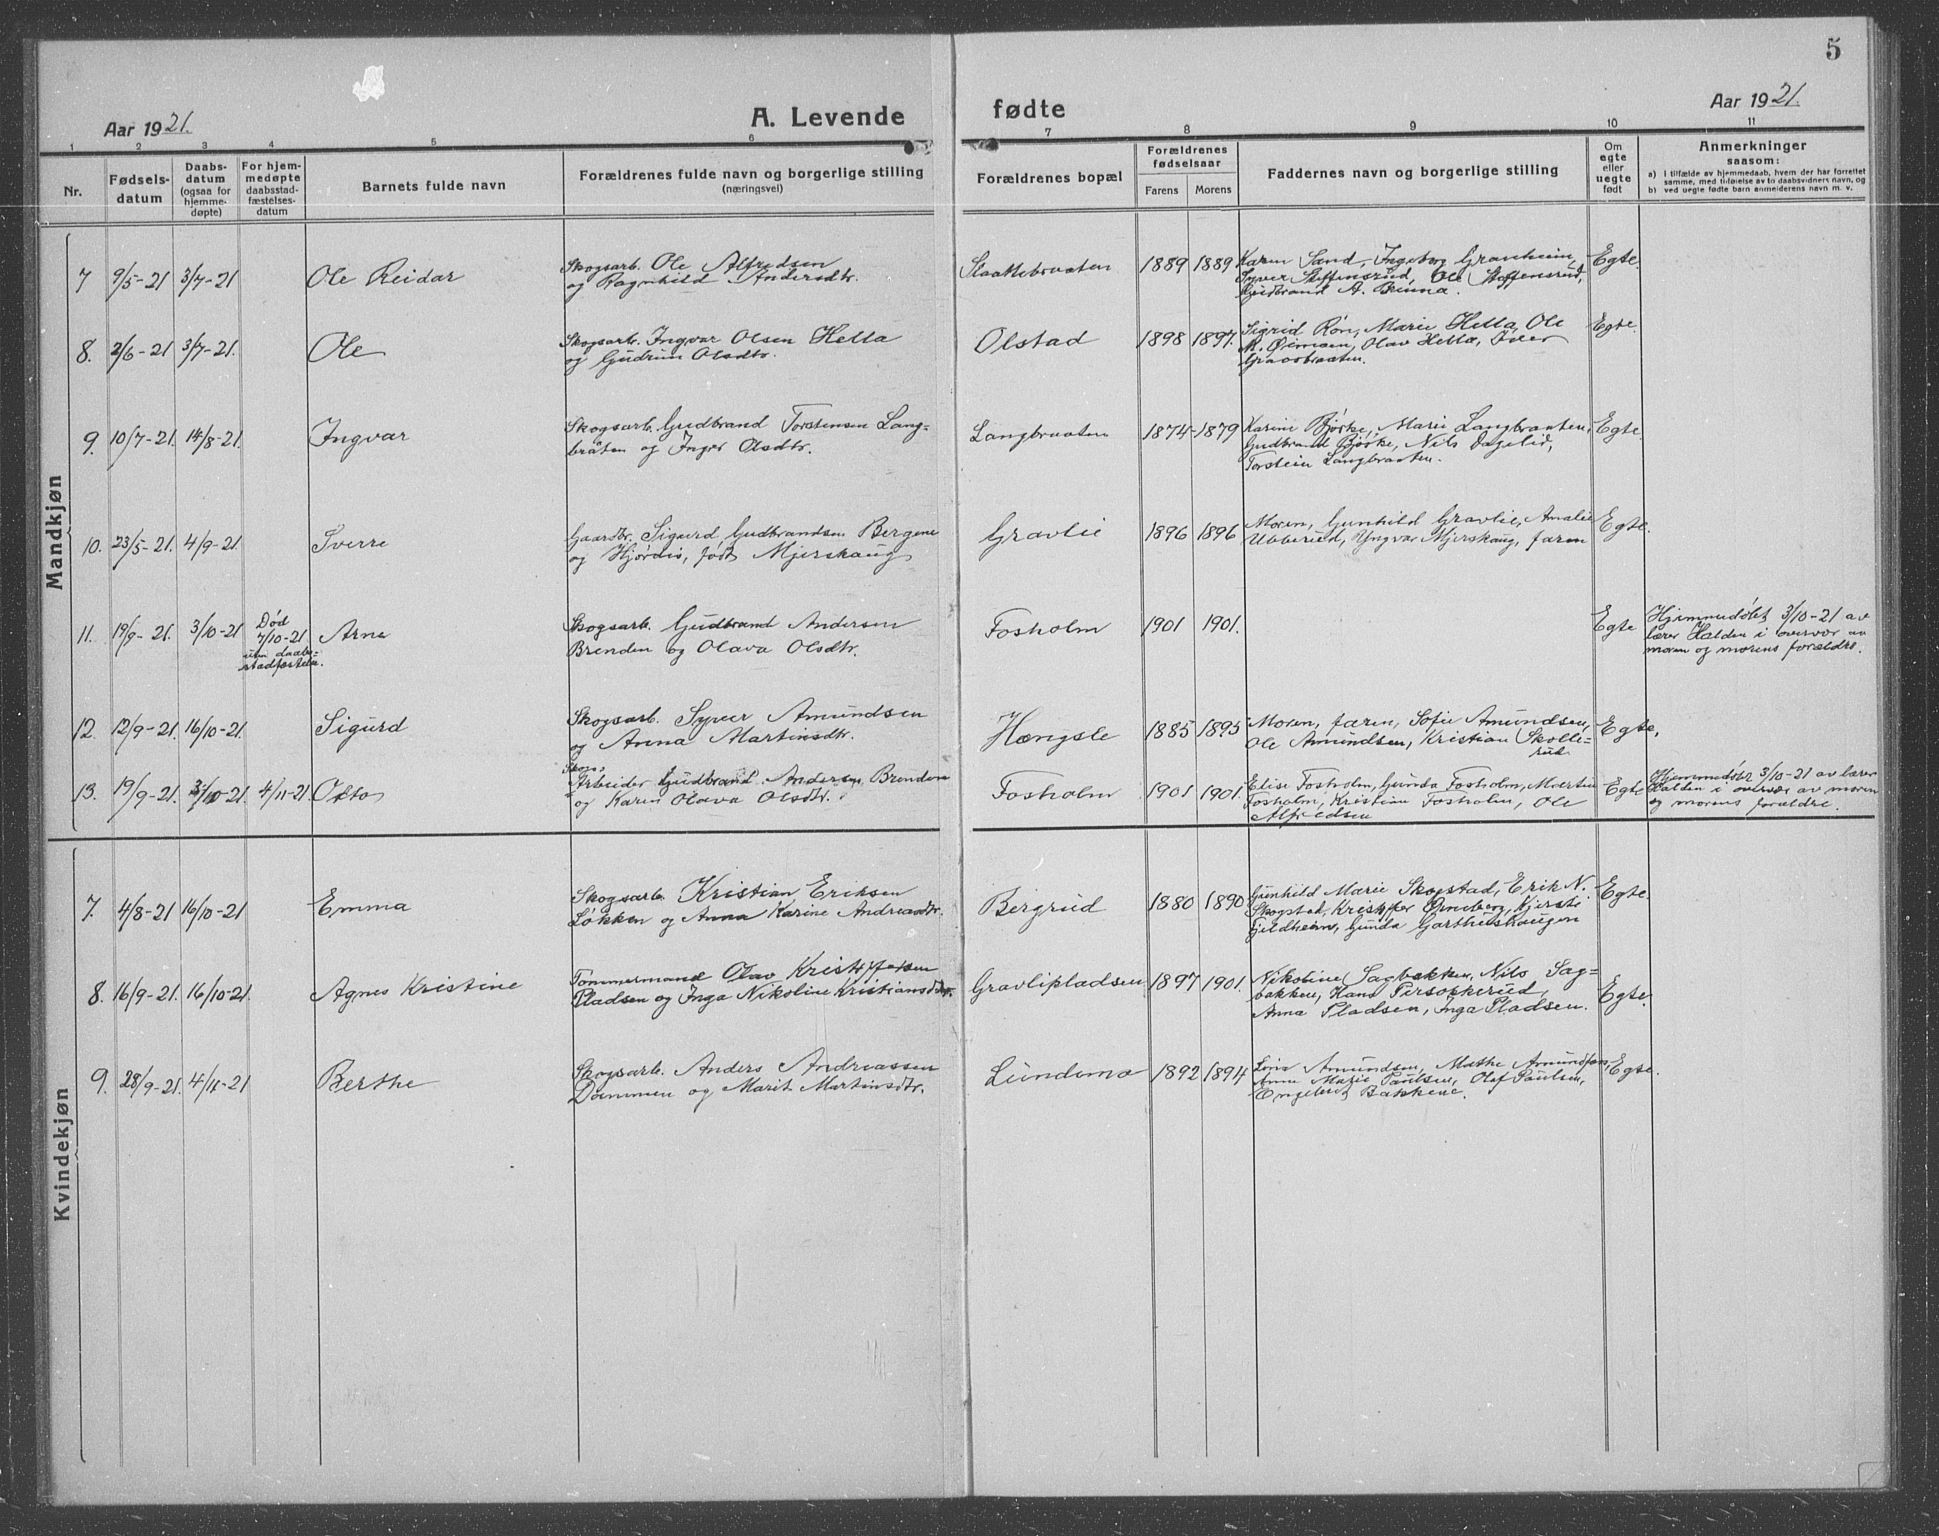 5
Aar 1921.
A. Levende
fødte
Aar 1921.
1 2 3 4 5 6 7 8 9 10 11
Nr.
Fødsels-
datum
Daabs-
datum
(ogsaa for
hjemme-
døpte)
For hjem-
medøpte
daabsstad-
fæstelses-
datum
Barnets fulde navn
Forældrenes fulde navn og borgerlige stilling
(næringsvei)
Forældrenes bopæl
Forældrenes
fødselsaar
Farens Morens
Faddernes navn og borgerlige stilling
Om
egte
eller
uegte
født
Anmerkninger
saasom:
a) I tilfælde av hjemmedaab, hvem der har forrettet
samme, med tilføielse av to daabsvidners navn, og
b) ved uegte fødte barn anmelderens navn m. v.
Mandkjøn
7 9/5-21 3/7-21 Ole Reidar
Skogsarb. Ole Alfredsen
og Ragnhild Andersdtr.
Slaattebraaten 1889 1889
Karen Sand, Ingeborg Granheim,
Syver Steffensrud, Ole Steffensrud,
Gudbrand A. Brenna.
Egte.
8. 2/6-21 3/7-21. Ole
Skogsarb. Ingvar Olsen Hella
og Gudrun Olsdtr.
Olstad 1898 1897.
Sigrid Røn, Marie Hella, Ole
Olav Hella, Iver
Egte.
9. 10/7-21. 14/8-21. Ingvar
Skogsarb. Gudbrand Torstensen Lang-
bråten og Inger Olsdtr.
Langbraaten 1874 1879
Karine Bjørke, Marie Langbraaten,
Gudbrand Bjørke, Nils Dagelid,
Torstein Langbraaten.
Egte.
10. 23/5-21. 4/9-21. Sverre
Gaardbr. Sigurd Gudbrandsen Bergene
og Hjørdis, født Mjerskaug
Gravlie 1896 1896
Moren, Gunhild Gravlie, Amalie
Ubberud, Yngvar Mjerskaug, faren
Egte.
11. 19/9-21. 3/10-21 Død
7/10-21
uten daabs-
stadfæstelse.
Arne
Skogsarb. Gudbrand Andersen
Brenden og Olava Olsdtr.
Fosholm 1901 1901.
Egte
Hjemmedøbt 3/10-21 av
lærer Halden i overvær av
moren og morens forældre.
12. 12/9-21. 16/10-21. Sigurd
Skogsarb. Syver Amundsen
og Anna Martinsdtr.
Hængsle 1885 1895
Moren, faren, Sofie Amundsen,
Ole Amundsen, Kristian Skolle-
rud.
Egte.
13. 19/9-21. 3/10-21. 4/11-21. Otto
Skogs-
Arbeider Gudbrand Andersen Brenden
og Karen Olava Olsdtr.
Fosholm 1901 1901.
Elise Fosholm, Gunda Fosholm, Martin
Fosholm, Kristian Fosholm, Ole
Alfredsen
Egte
Hjemmedøbt 3/10-21 av lærer
Halden i overvær av moren
og morens forældre.
Kvindekjøn
7. 4/8-21 16/10-21 Emma
Skogsarb. Kristian Eriksen
Løkken og Anna Karine Andreasdtr.
Bergrud 1880 1890
Gunhild Marie Skogstad, Erik N.
Skogstad, Kristoffer Ørneberg, Kjersti
Gjeldheim, Gunda Garthushaugen
Egte.
8. 16/9-21. 16/10-21. Agnes Kristine
Tømmermand Olav Kristoffersen
Pladsen og Inga Nikoline Kristiansdtr.
Gravlipladsen 1897 1901.
Nikoline Sagbakken, Nils Sag-
bakken, Hans Persokkerud,
Anna Pladsen, Inga Pladsen.
Egte.
9. 28/9-21. 4/11-21 Berthe
Skogsarb. Anders Andreassen
Dammen og Marit Martinsdtr.
Lundemo 1892 1894
Lina Amundsen, Mathe Amundsen,
Anne Marie Paulsen, Olaf Paulsen,
Engebret Bakkene.
Egte.